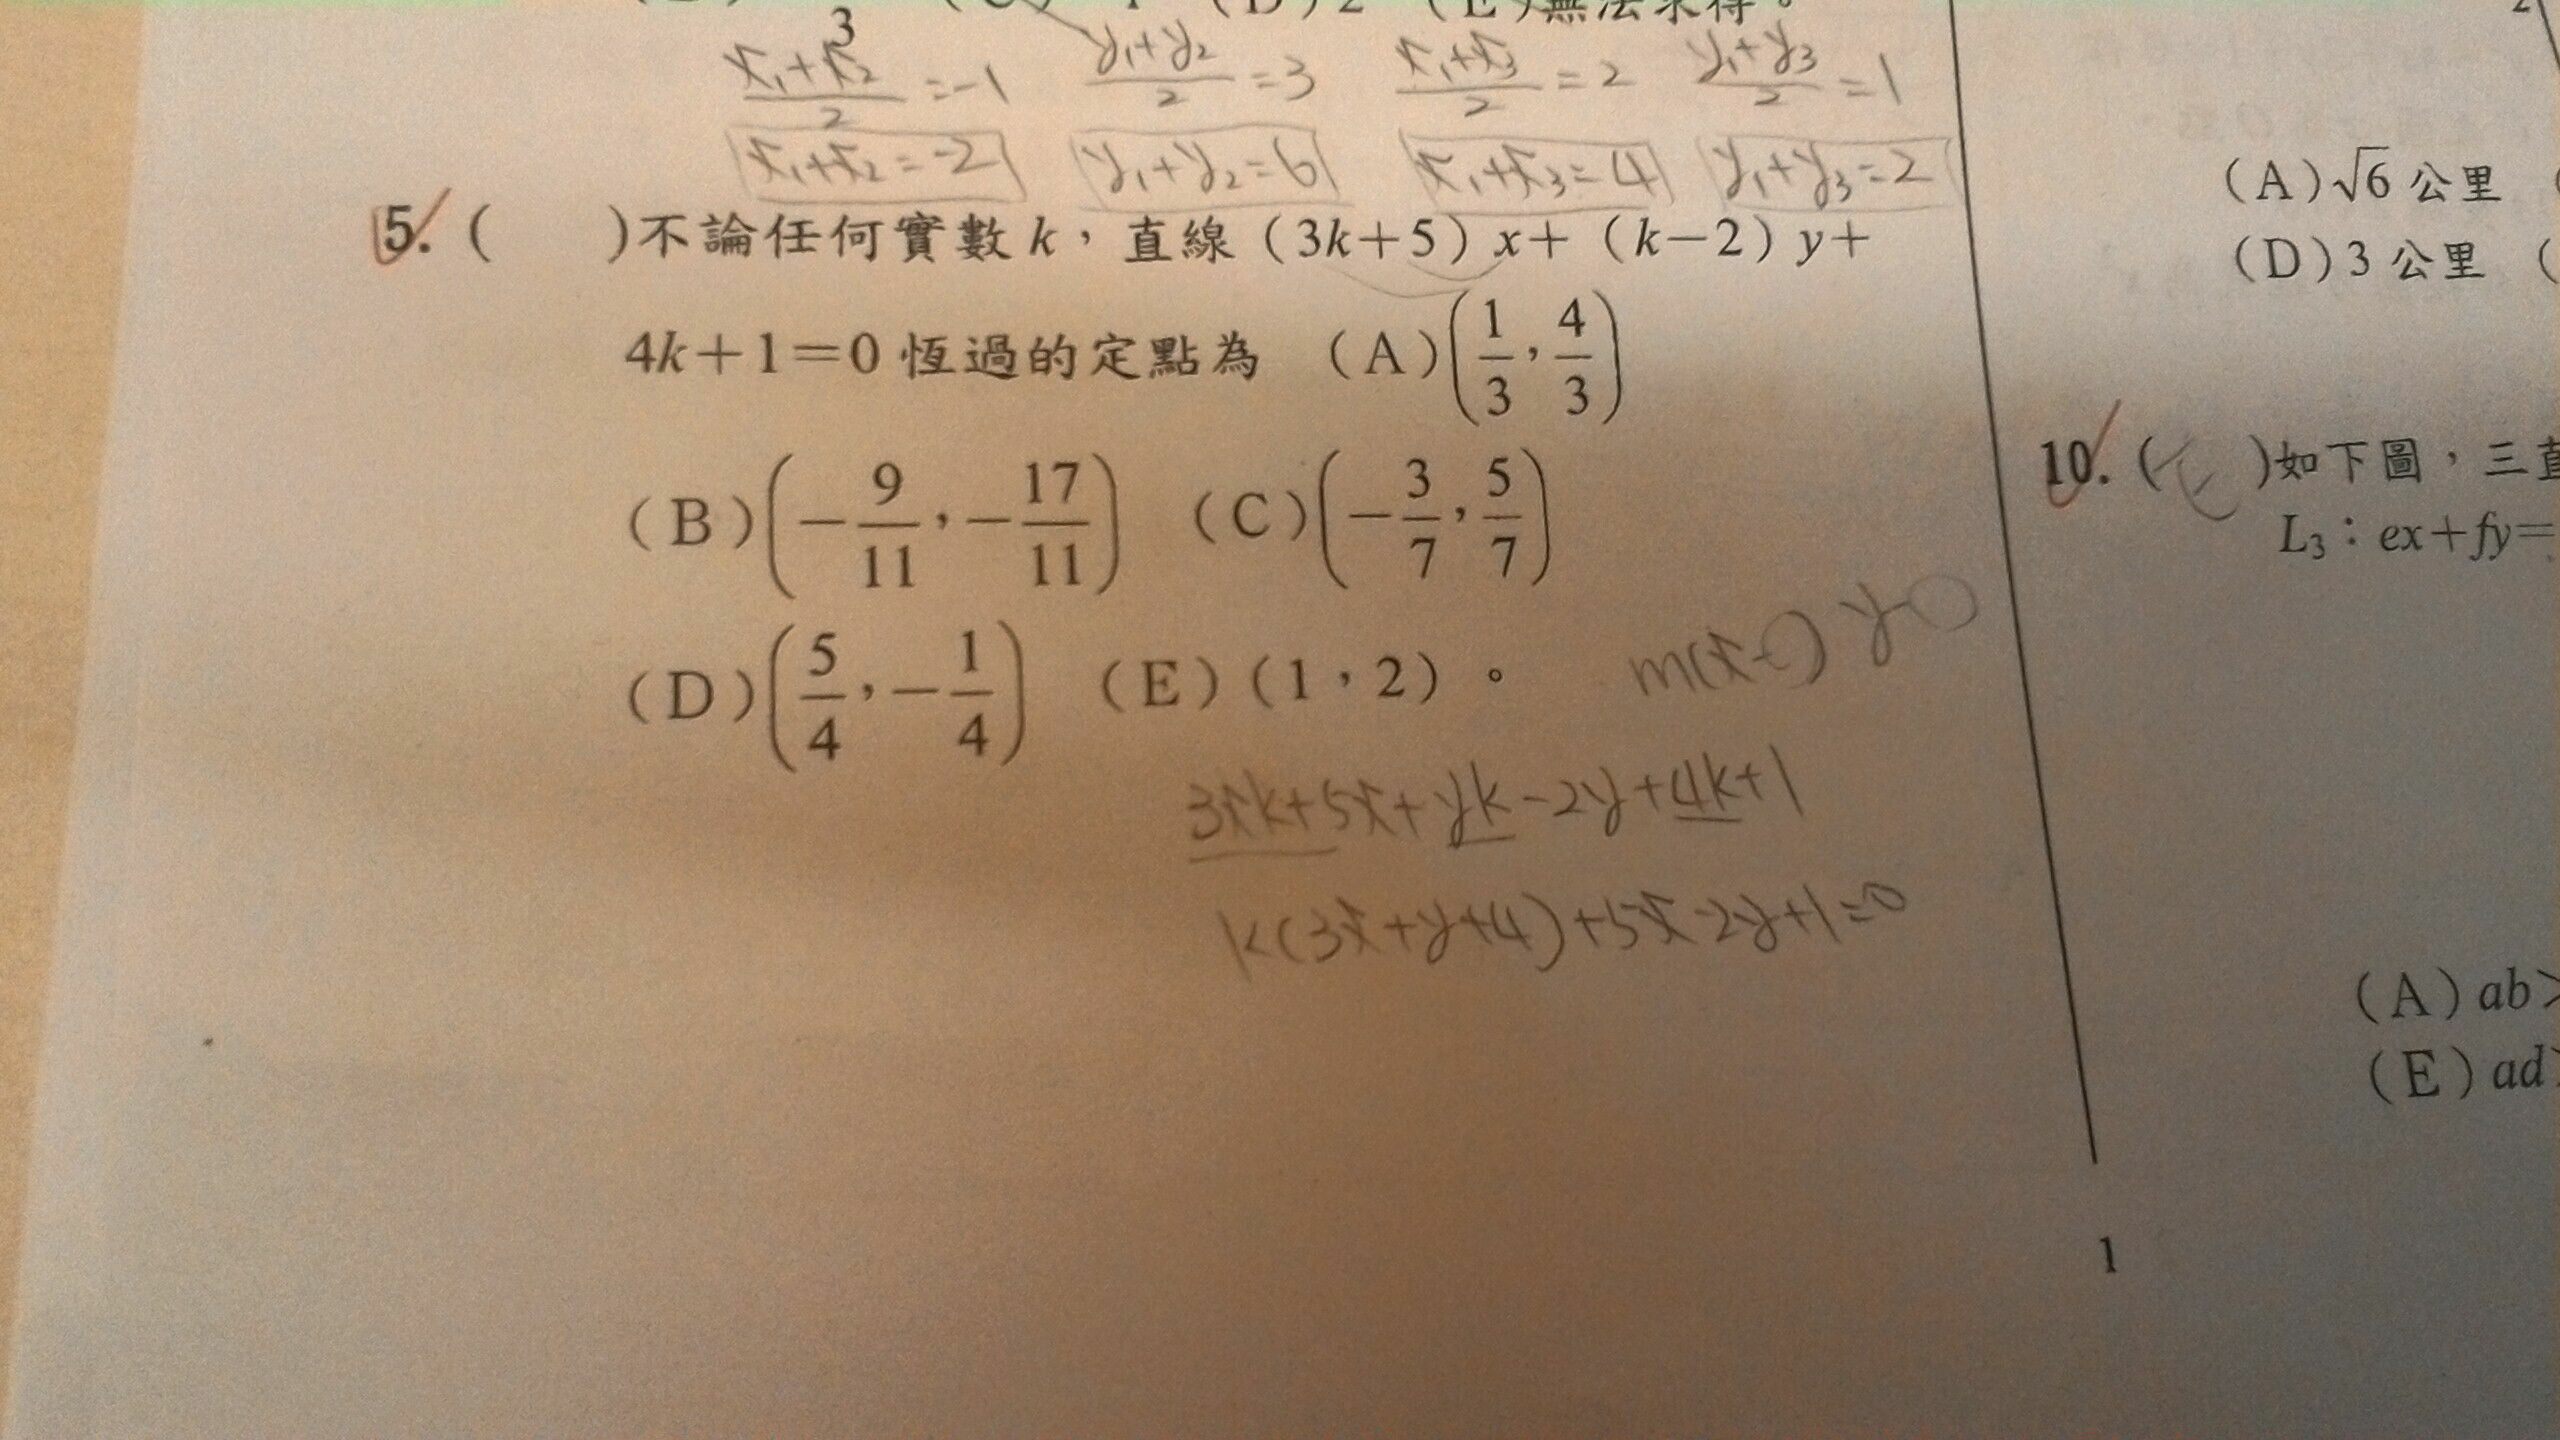 3
(E)無法求得。
x₁+x₂/2=-1 y₁+y₂/2=3 x₁+x₃/2=2 y₁+y₃/2=1
x₁+x₂=-2 y₁+y₂=6 x₁+x₃=4 y₁+y₃=2
5.( )不論任何實數k,直線(3k+5)x+(k-2)y+
4k+1=0恆過的定點為 (A)(1/3,4/3)
(B)(-9/11,-17/11) (C)(-3/7,5/7)
(D)(5/4,-1/4) (E)(1,2)。
3xk+5x+yk-2y+4k+1
k(3x+y+4)+5x-2y+1=0
(A)√6公里
(D)3公里 (
10.( )如下圖,三直
L₃:ex+fy=
(A)ab>
(E)ad>
1